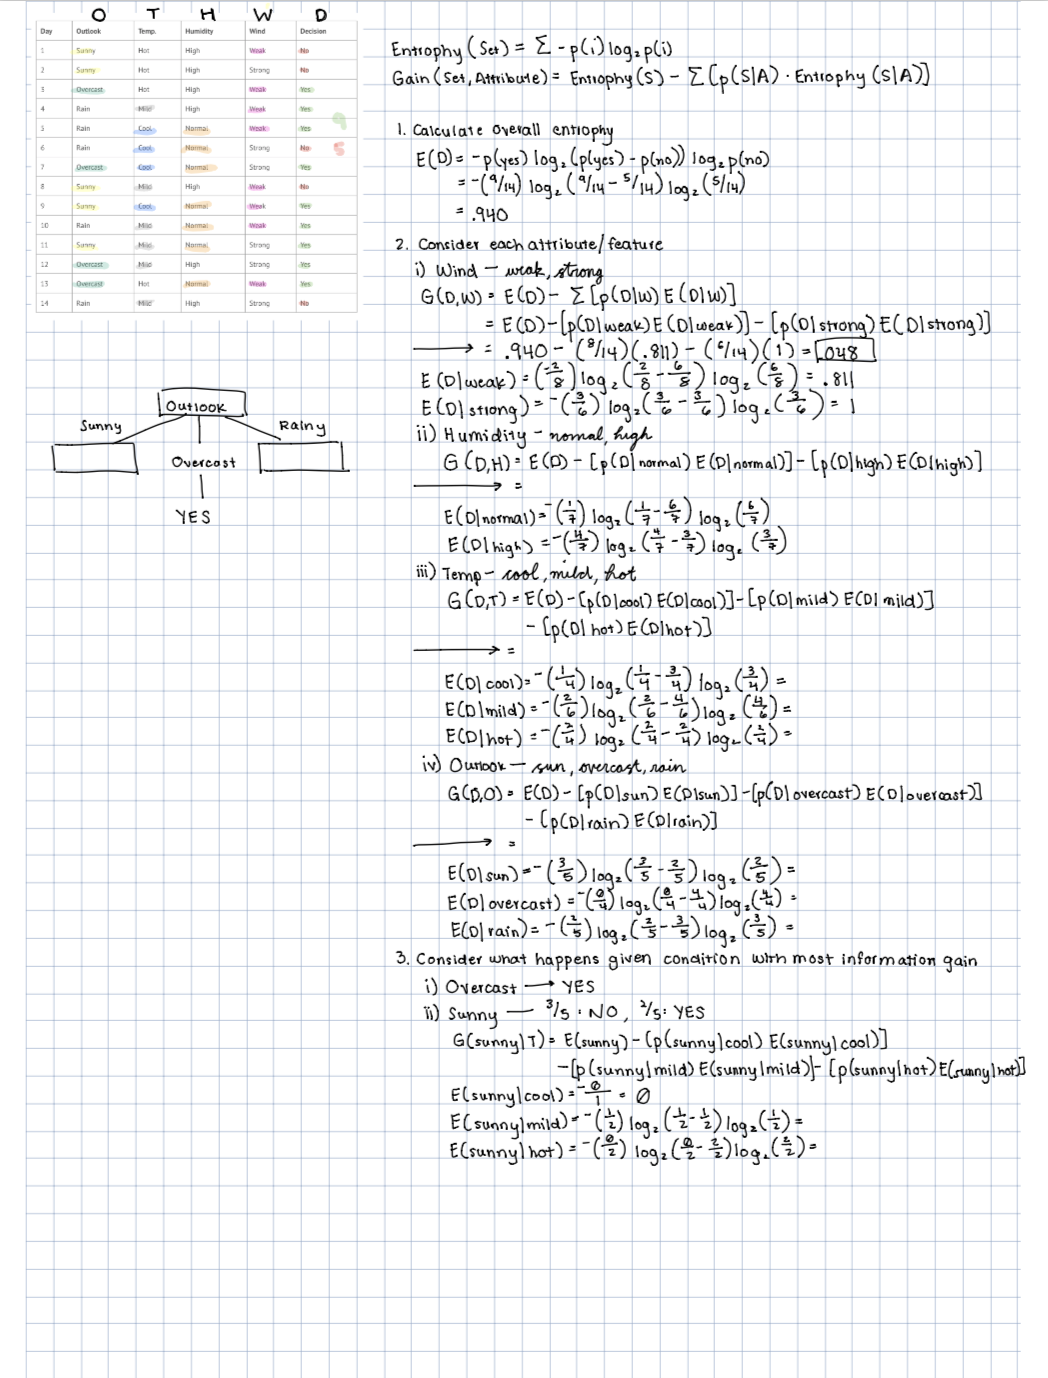 O T H W D
Day Outlook Temp. Humidity Wind Decision
1 Sunny Hot High Weak No
2 Sunny Hot High Strong No
3 Overcast Hot High Weak Yes
4 Rain Mild High Weak Yes
5 Rain Cool Normal Weak Yes
6 Rain Cool Normal Strong No
7 Overcast Cool Normal Strong Yes
8 Sunny Mild High Weak No
9 Sunny Cool Normal Weak Yes
10 Rain Mild Normal Weak Yes
11 Sunny Mild Normal Strong Yes
12 Overcast Mild High Strong Yes
13 Overcast Hot Normal Weak Yes
14 Rain Mild High Strong No
9
5
Outlook
Sunny
Rainy
Overcast
YES
Entrophy (Set) = Σ -p(i) log₂ p(i)
Gain (Set, Attribute) = Entrophy (S) - Σ [p(S|A) · Entrophy (S|A)]
1. Calculate overall entrophy
E(D) = -p(yes) log₂ (p(yes) - p(no)) log₂ p(no)
= -(9/14) log₂ (9/14 - 5/14) log₂ (5/14)
= .940
2. Consider each attribute/feature
i) Wind - weak, strong
G(D,W) = E(D) - Σ [p(D|W) E(D|W)]
= E(D) - [p(D|weak) E(D|weak)] - [p(D|strong) E(D|strong)]
→ = .940 - (8/14)(.811) - (6/14)(1) = .048
E(D|weak) = (-2/8) log₂ (2/8 - 6/8) log₂ (6/8) = .811
E(D|strong) = -(3/6) log₂ (3/6 - 3/6) log₂ (3/6) = 1
ii) Humidity - nomal, high
G(D,H) = E(D) - [p(D|normal) E(D|normal)] - [p(D|high) E(D|high)]
→ =
E(D|normal) = -(1/7) log₂ (1/7 - 6/7) log₂ (6/7)
E(D|high) = -(4/7) log₂ (4/7 - 3/7) log₂ (3/7)
iii) Temp - cool, mild, hot
G(D,T) = E(D) - [p(D|cool) E(D|cool)] - [p(D|mild) E(D|mild)]
- [p(D|hot) E(D|hot)]
→ =
E(D|cool) = -(1/4) log₂ (1/4 - 3/4) log₂ (3/4) =
E(D|mild) = -(2/6) log₂ (2/6 - 4/6) log₂ (4/6) =
E(D|hot) = -(2/4) log₂ (2/4 - 2/4) log₂ (2/4) =
iv) Outlook - sun, overcast, rain
G(D,O) = E(D) - [p(D|sun) E(D|sun)] - [p(D|overcast) E(D|overcast)]
- [p(D|rain) E(D|rain)]
→ =
E(D|sun) = -(3/5) log₂ (3/5 - 2/5) log₂ (2/5) =
E(D|overcast) = -(0/4) log₂ (0/4 - 4/4) log₂ (4/4) =
E(D|rain) = -(2/5) log₂ (2/5 - 3/5) log₂ (3/5) =
3. Consider what happens given condition with most information gain
i) Overcast → YES
ii) Sunny — 3/5 : NO, 2/5: YES
G(sunny|T) = E(sunny) - [p(sunny|cool) E(sunny|cool)]
- [p(sunny|mild) E(sunny|mild)] - [p(sunny|hot) E(sunny|hot)]
E(sunny|cool) = -0/1 = 0
E(sunny|mild) = -(1/2) log₂ (1/2 - 1/2) log₂ (1/2) =
E(sunny|hot) = -(0/2) log₂ (0/2 - 2/2) log₂ (2/2) =